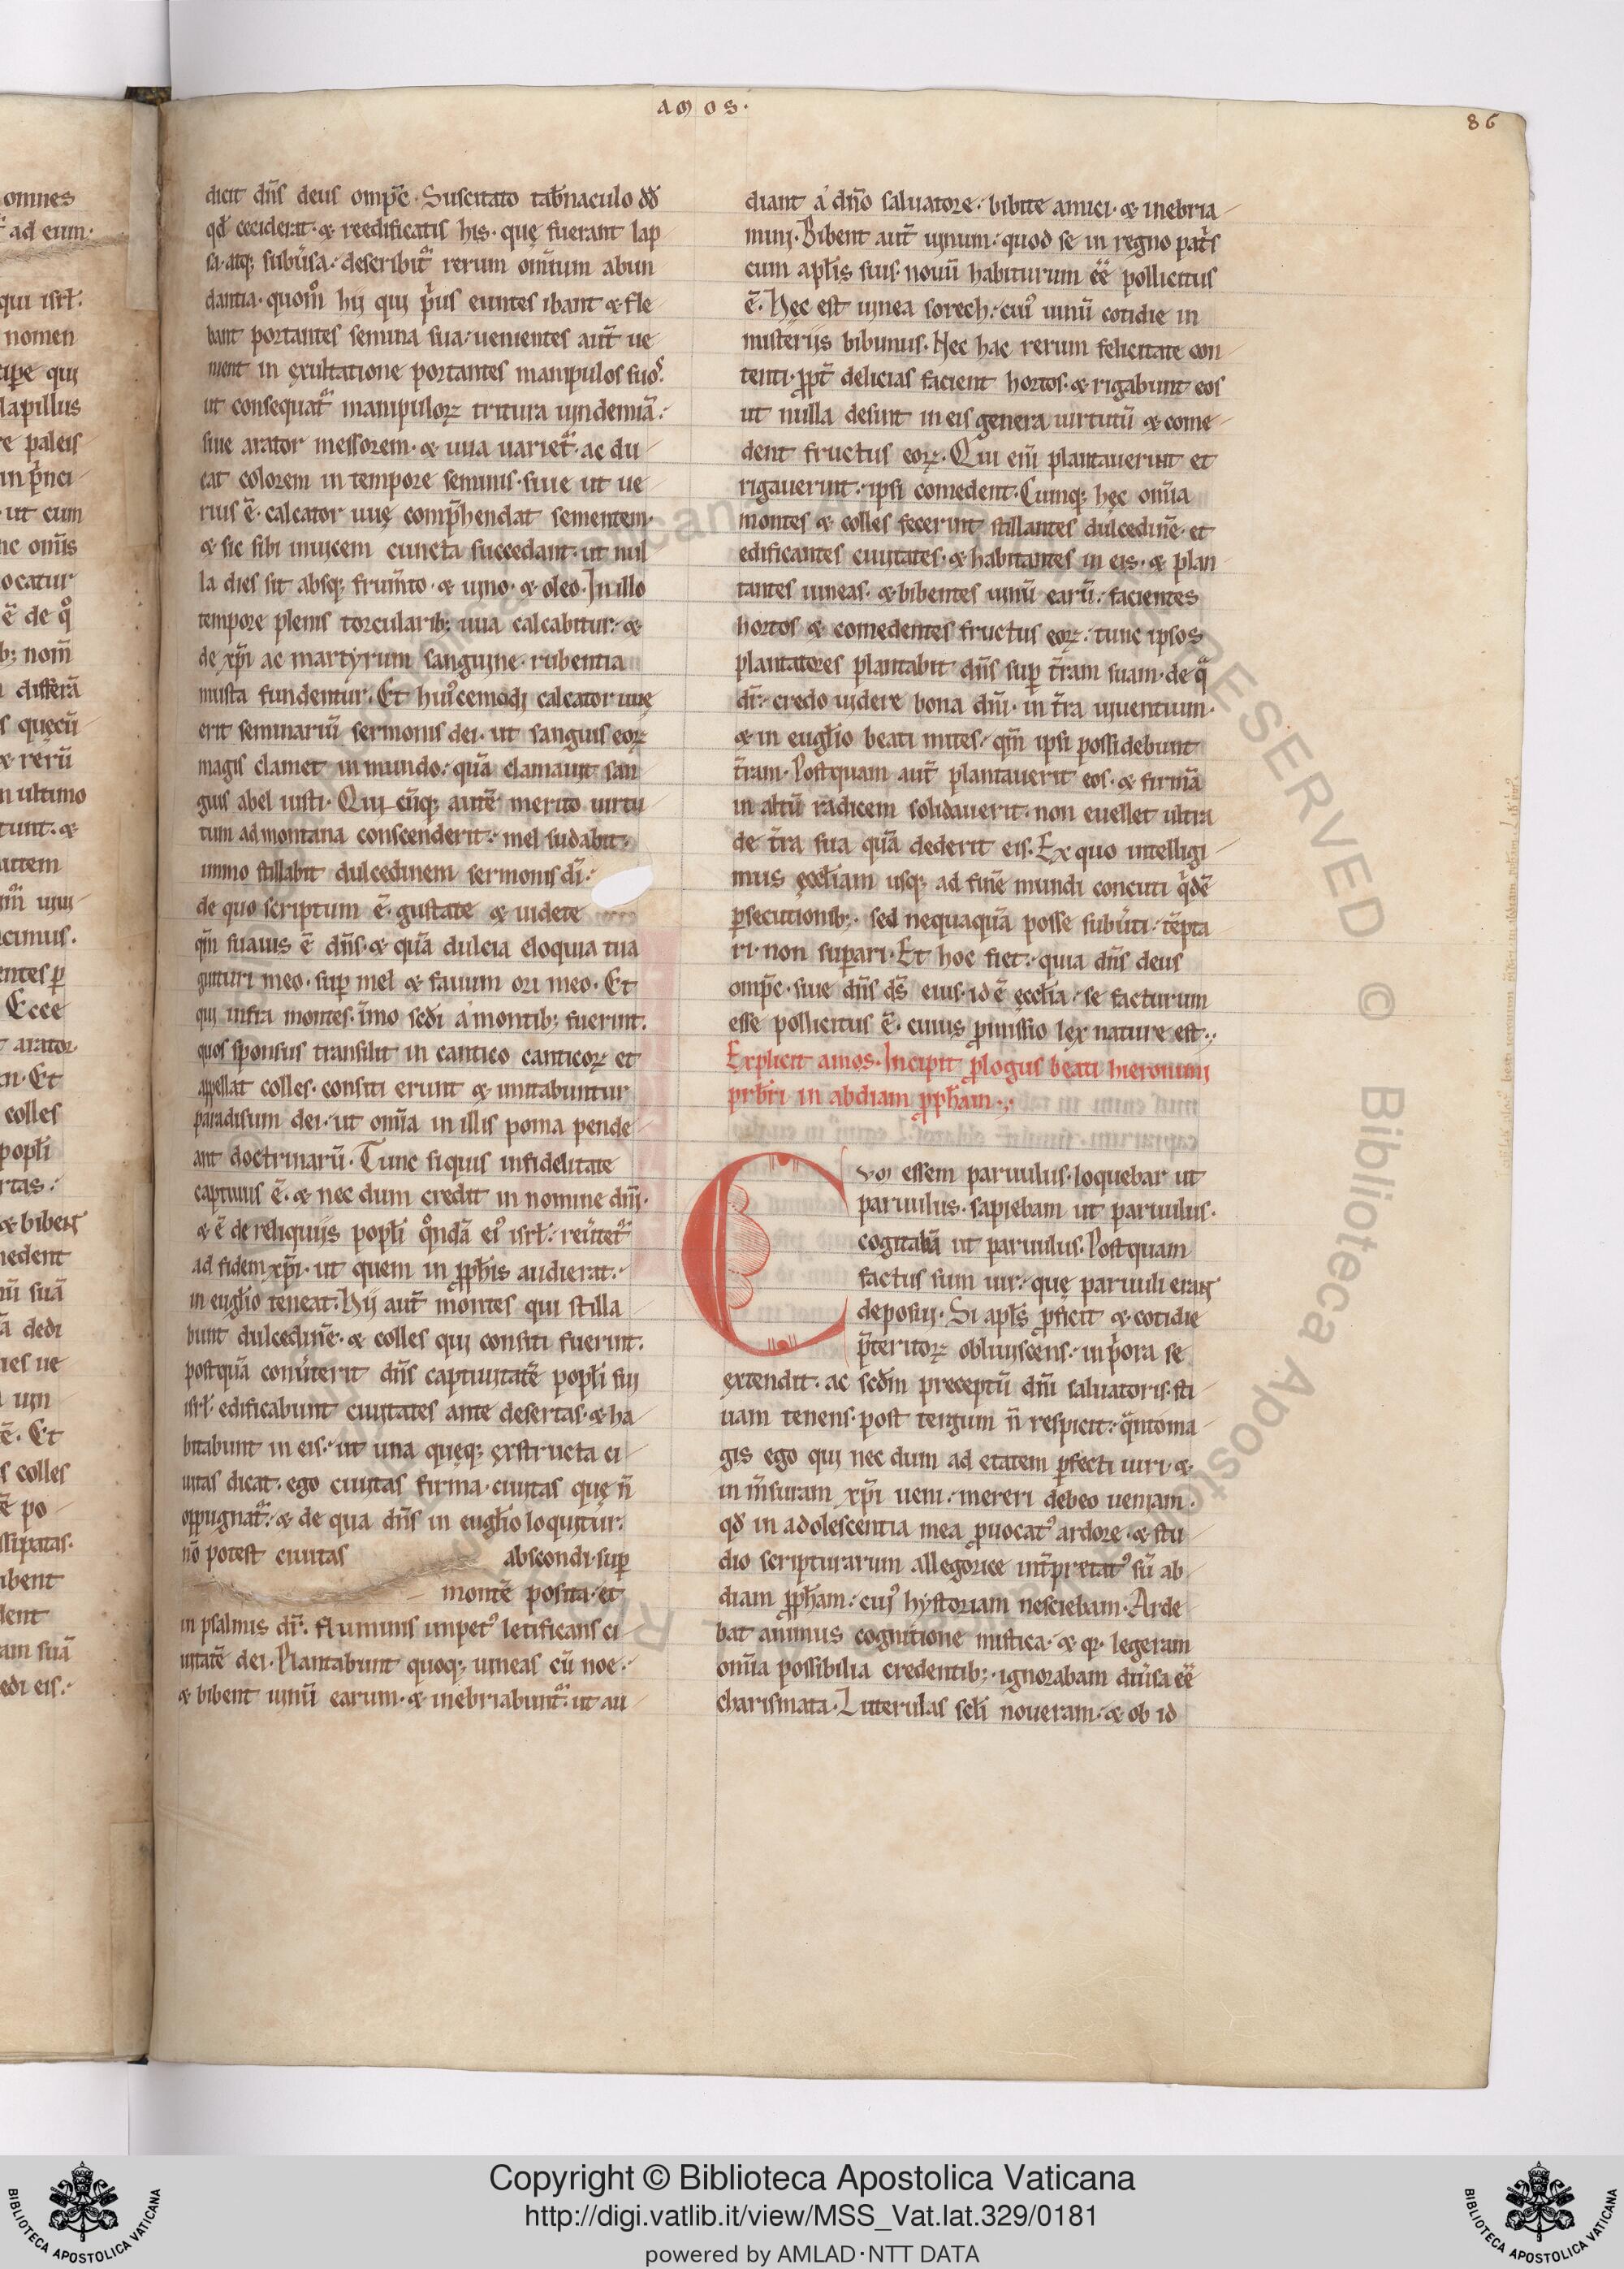 AMOS·
86
omnes
ad eum·
qui isrł·
nomen
cipe qui
lapillus
re paleis
in p̾nci
· ut cum
nc om̄is
ocatur
ē de qͦ
b; nom̄
differā
s quęcū
& rerū
n ultimo
tunt· &
autem
cimus·
entes ꝑ
Ecce
arator·
n· Et
colles
popłi
rtas·
& biben̄t
medent
nū suā
ā dedi
nes ue
uin
ē· Et
s colles
ē po
ssipatas·
ibent
dent
am suā
edi eis·
dicit dn̄s deus omp̄c· Suscitato tab̄naculo dd̄
qd̄ ceciderat· & reedificatis his· quę fuerant lap
sa· atq; subūsa· describit᷑ rerum om̄ium abun
dantia· quom̊ hij qui p̾us euntes ibant & fle
bant portantes semina sua· uenientes aut̄ ue
nient in exultatione portantes manipulos suoˢ·
ut consequat᷑ manipuloꝝ tritura uindemiā·
siue arator messorem· & uua uariet᷑· ac du
cat colorem in tempore seminis· siue ut ue
rius ē· calcator uuę comp̄hendat sementem·
& sic sibi inuicem cuncta succedant· ut nul
la dies sit absq; frum̄to· & uino· & oleo· In illo
tempore plenis torcularib; uua calcabitur· &
de xp̄i ac martyrum sanguine· rubentia
musta fundentur· Et hui᷒cemodi calcator uuę
erit seminariū sermonis dei· ut sanguis eoꝝ
magis clamet in mundo· quā clamauit san
guis abel iusti· Qui cūq; autē merito uirtu
tum ad montana conscenderit· mel sudabit·
immo stillabit dulcedinem sermonis dī·
de quo scriptum ē· gustate & uidete
qm̄ suauis ē dn̄s· & quā dulcia eloquia tua
gutturi meo· suꝑ mel & fauum ori meo· Et
qui infra montes· īmo sedi a montib; fuerint·
quos sponsus transilit in cantico canticoꝝ et
appellat colles· consiti erunt & imitabuntur
paradisum dei· ut om̄ia in illis poma pende
ant doctrinarū· Tunc siquis infidelitate
captiuus ē· & nec dum credit in nomine dn̄i·
& ē de reliquiis popłi qͦndā ei᷒ isrł· reūtet᷑
ad fidem xp̄i· ut quem in ꝓpħis audierat·
in eugłio teneat· Hij aut̄ montes qui stilla
bunt dulcedinē· & colles qui consiti fuerint·
postquā conūterit dn̄s captiuitatē popłi sui
isrł· edificabunt ciuitates ante desertas· & ha
bitabunt in eis· ut una quęq; exstructa ci
uitas dicat· ego ciuitas firma· ciuitas quę n̄
oppugnat᷑· & de qua dn̄s in eugłio loquitur·
nō potest ciuitas abscondi· suꝑ
montē posita· et
in psalmis dr̄· fluminis impet᷒ letificans ci
uitatē dei· Plantabunt quoq; uineas cū noe·
& bibent uinū earum· & inebriabunt᷑· ut au
diant a dn̄o saluatore· bibite amici· & inebria
mini· Bibent aut̄ uinum· quod se in regno pat̄s
cum apłis suis· nouū habiturum eē̄ pollicitus
ē· Hęc est uinea sorech· cui᷒ uinū cotidie in
misteriis bibimus· Nec hac rerum felicitate con
tenti· ꝓpt̄ delicias facient hortos· & rigabunt eos
ut nulla desint in eis genera uirtutū & come
dent fructus eoꝝ· Qui eīm plantauerint et
rigauerint· ipsi comedent· Cumq; hęc om̄ia
montes & colles fecerint stillantes dulcedinē· et
edificantes ciuitates· & habitantes in eis· & plan
tantes uineas· & bibentes uinū earū· facientes
hortos & comedentes fructus eoꝝ· tunc ipsos
plantatores plantabit dn̄s suꝑ t̄ram suam· de qͣ
dr̄· credo uidere bona dn̄i· in t̄ra uiuentium·
& in eugłio beati mites· qm̄ ipsi possidebunt
t̄ram· Postquam aut̄ plantauerit eos· & firmā
in altū radicem solidauerit· non euellet ultra
de t̄ra sua quā dederit eis· Ex quo intelligi
mus ęccłiam usq; ad finē mundi concuti q̾dē
ꝑsecutionib;· sed nequaquā posse subūti· tēpta
ri· non suꝑari· Et hoc fiet· quia dn̄s deus
omp̄c· siue dn̄s ds̄ eius· id ē ęccłia· se facturum
esse pollicitus ē· cuius ꝓmissio lex nature est·
Explicit amos· Incipit ꝓlogus beati hieronimi
prb̄ri in abdiam ꝓpħam·
Cvm essem paruulus· loquebar ut
paruulus· sapiebam ut paruulus·
cogitabā ut paruulus· Postquam
factus sum uir· quę paruuli eran̄t
deposui· Si apłs ꝓficit & cotidie
p̄teritoꝝ obliuiscens· in p̾ora se
extendit· ac scd̄m preceptū dn̄i saluatoris· sti
uam tenens· post tergum n̄ respicit· qͣntoma
gis ego qui nec dum ad etatem ꝑfecti uiri &
in m̄suram xp̄i ueni· mereri debeo ueniam·
qd̄ in adolescentia mea ꝓuocat᷒ ardore & stu
dio scripturarum allegorice int̄pretat᷒ sū ab
diam ꝓpħam· cui᷒ hystoriam nesciebam· Arde
bat animus cognitione mistica· & qꝛ legeram
om̄ia possibilia credentib;· ignorabam diūsa eē̄
charismata· Litterulas scłi noueram· & ob id
Copyright © Biblioteca Apostolica Vaticana
http://digi.vatlib.it/view/MSS_Vat.lat.329/0181
powered by AMLAD·NTT DATA
BIBLIOTECA APOSTOLICA VATICANA
BIBLIOTECA APOSTOLICA VATICANA